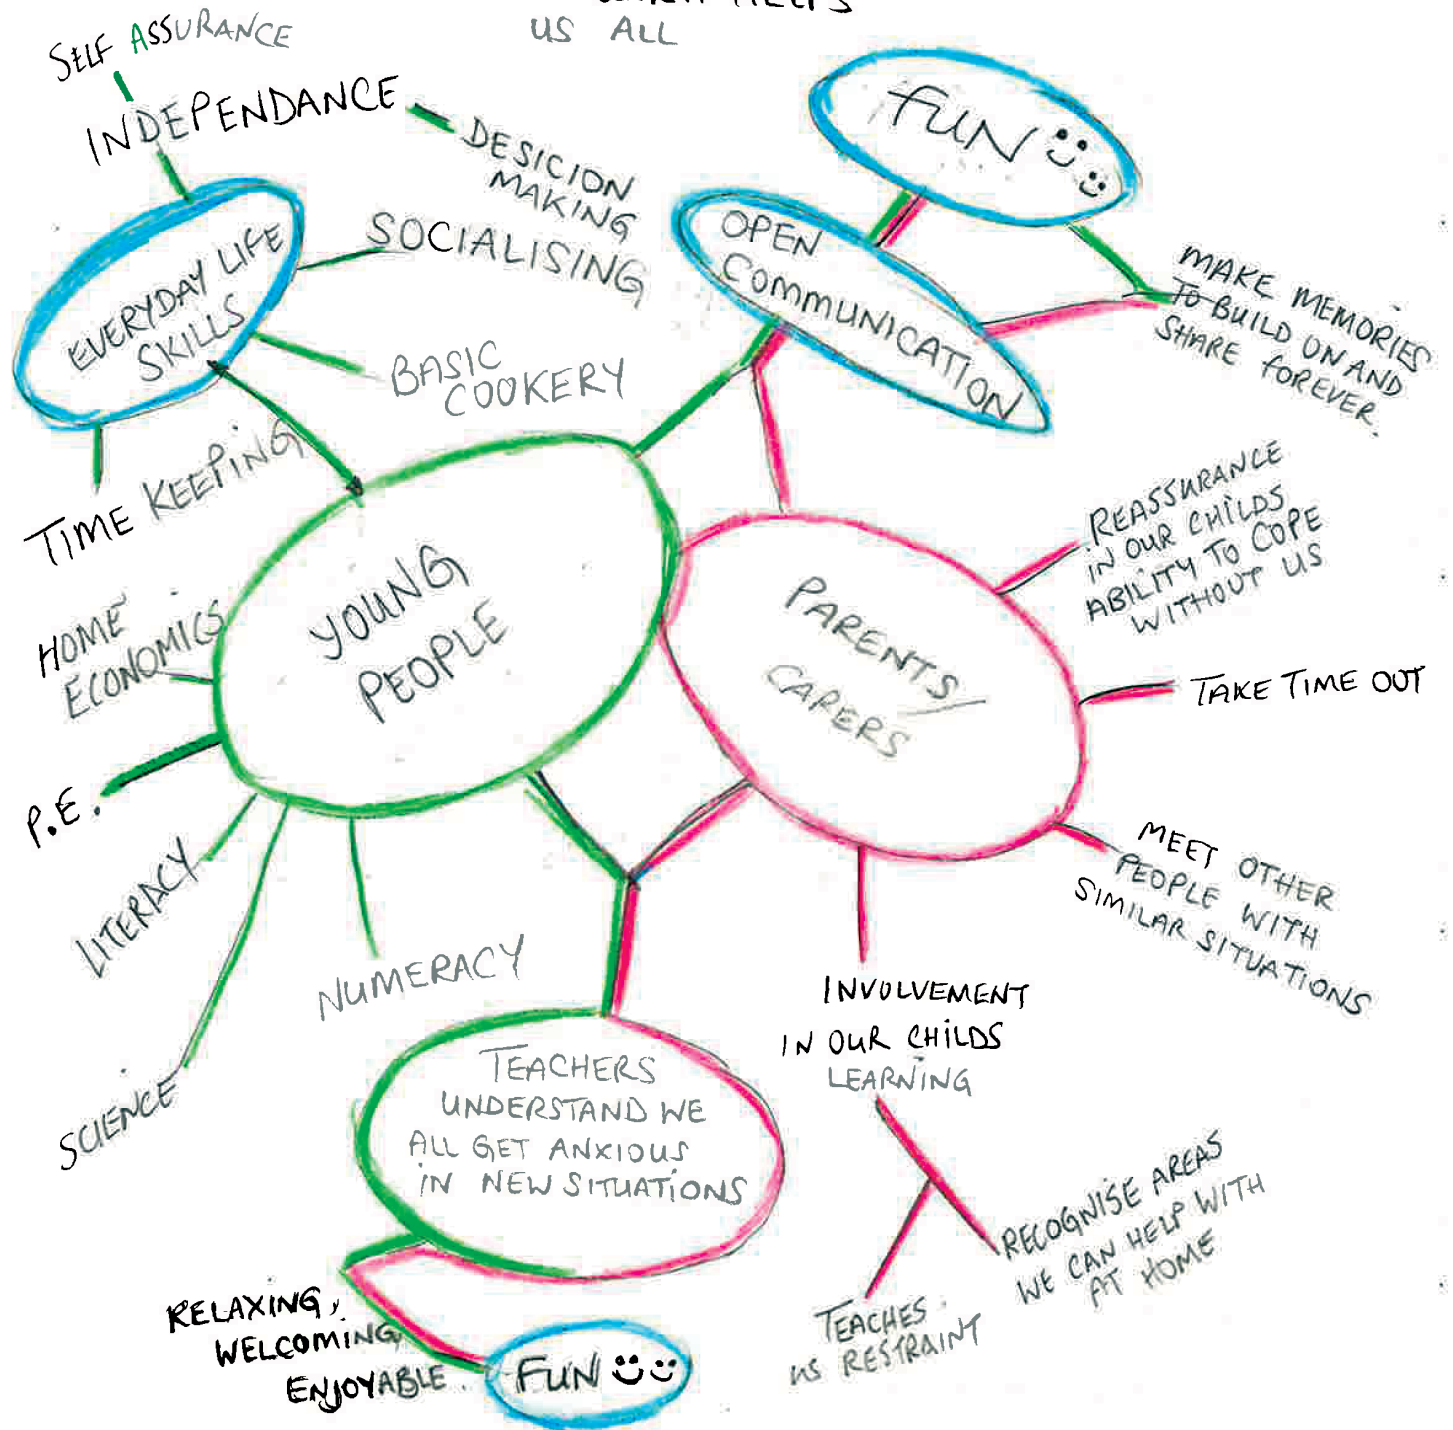 HELPS
US ALL
SELF ASSURANCE
INDEPENDANCE
DESICION
MAKING
SOCIALISING
EVERYDAY LIFE
SKILLS
BASIC
COOKERY
TIME KEEPING
FUN
OPEN
COMMUNICATION
MAKE MEMORIES
TO BUILD ON AND
SHARE FOREVER.
YOUNG
PEOPLE
PARENTS/
CARERS
REASSURANCE
IN OUR CHILDS
ABILITY TO COPE
WITHOUT US
TAKE TIME OUT
MEET OTHER
PEOPLE WITH
SIMILAR SITUATIONS
HOME
ECONOMICS
P.E.
LITERACY
SCIENCE
NUMERACY
INVOLVEMENT
IN OUR CHILDS
LEARNING
TEACHES
US RESTRAINT
RECOGNISE AREAS
WE CAN HELP WITH
AT HOME
TEACHERS
UNDERSTAND WE
ALL GET ANXIOUS
IN NEW SITUATIONS
RELAXING,
WELCOMING
ENJOYABLE.
FUN